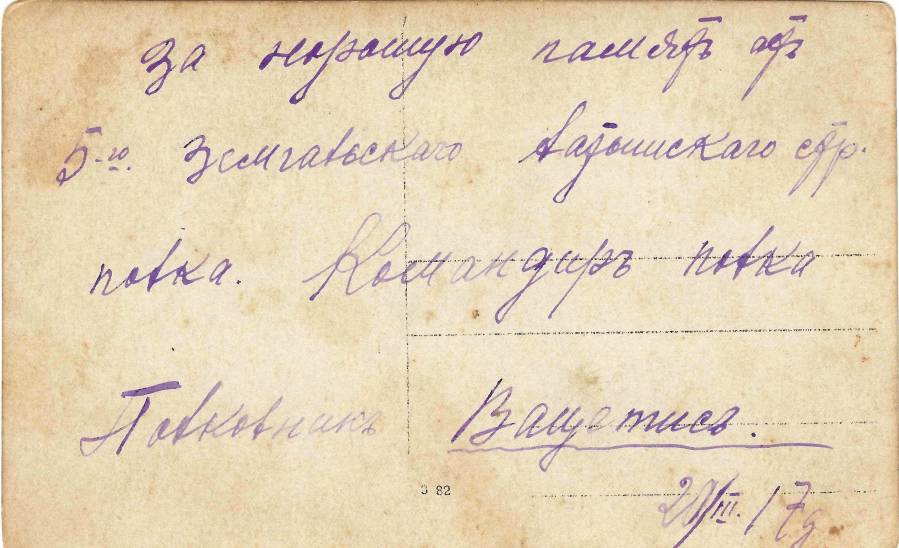 За хорошую память отъ
5-го. Земгальскаго Латышскаго стр.
полка. Командиръ полка
Полковникъ Вацетисъ.
82
/III. 17г